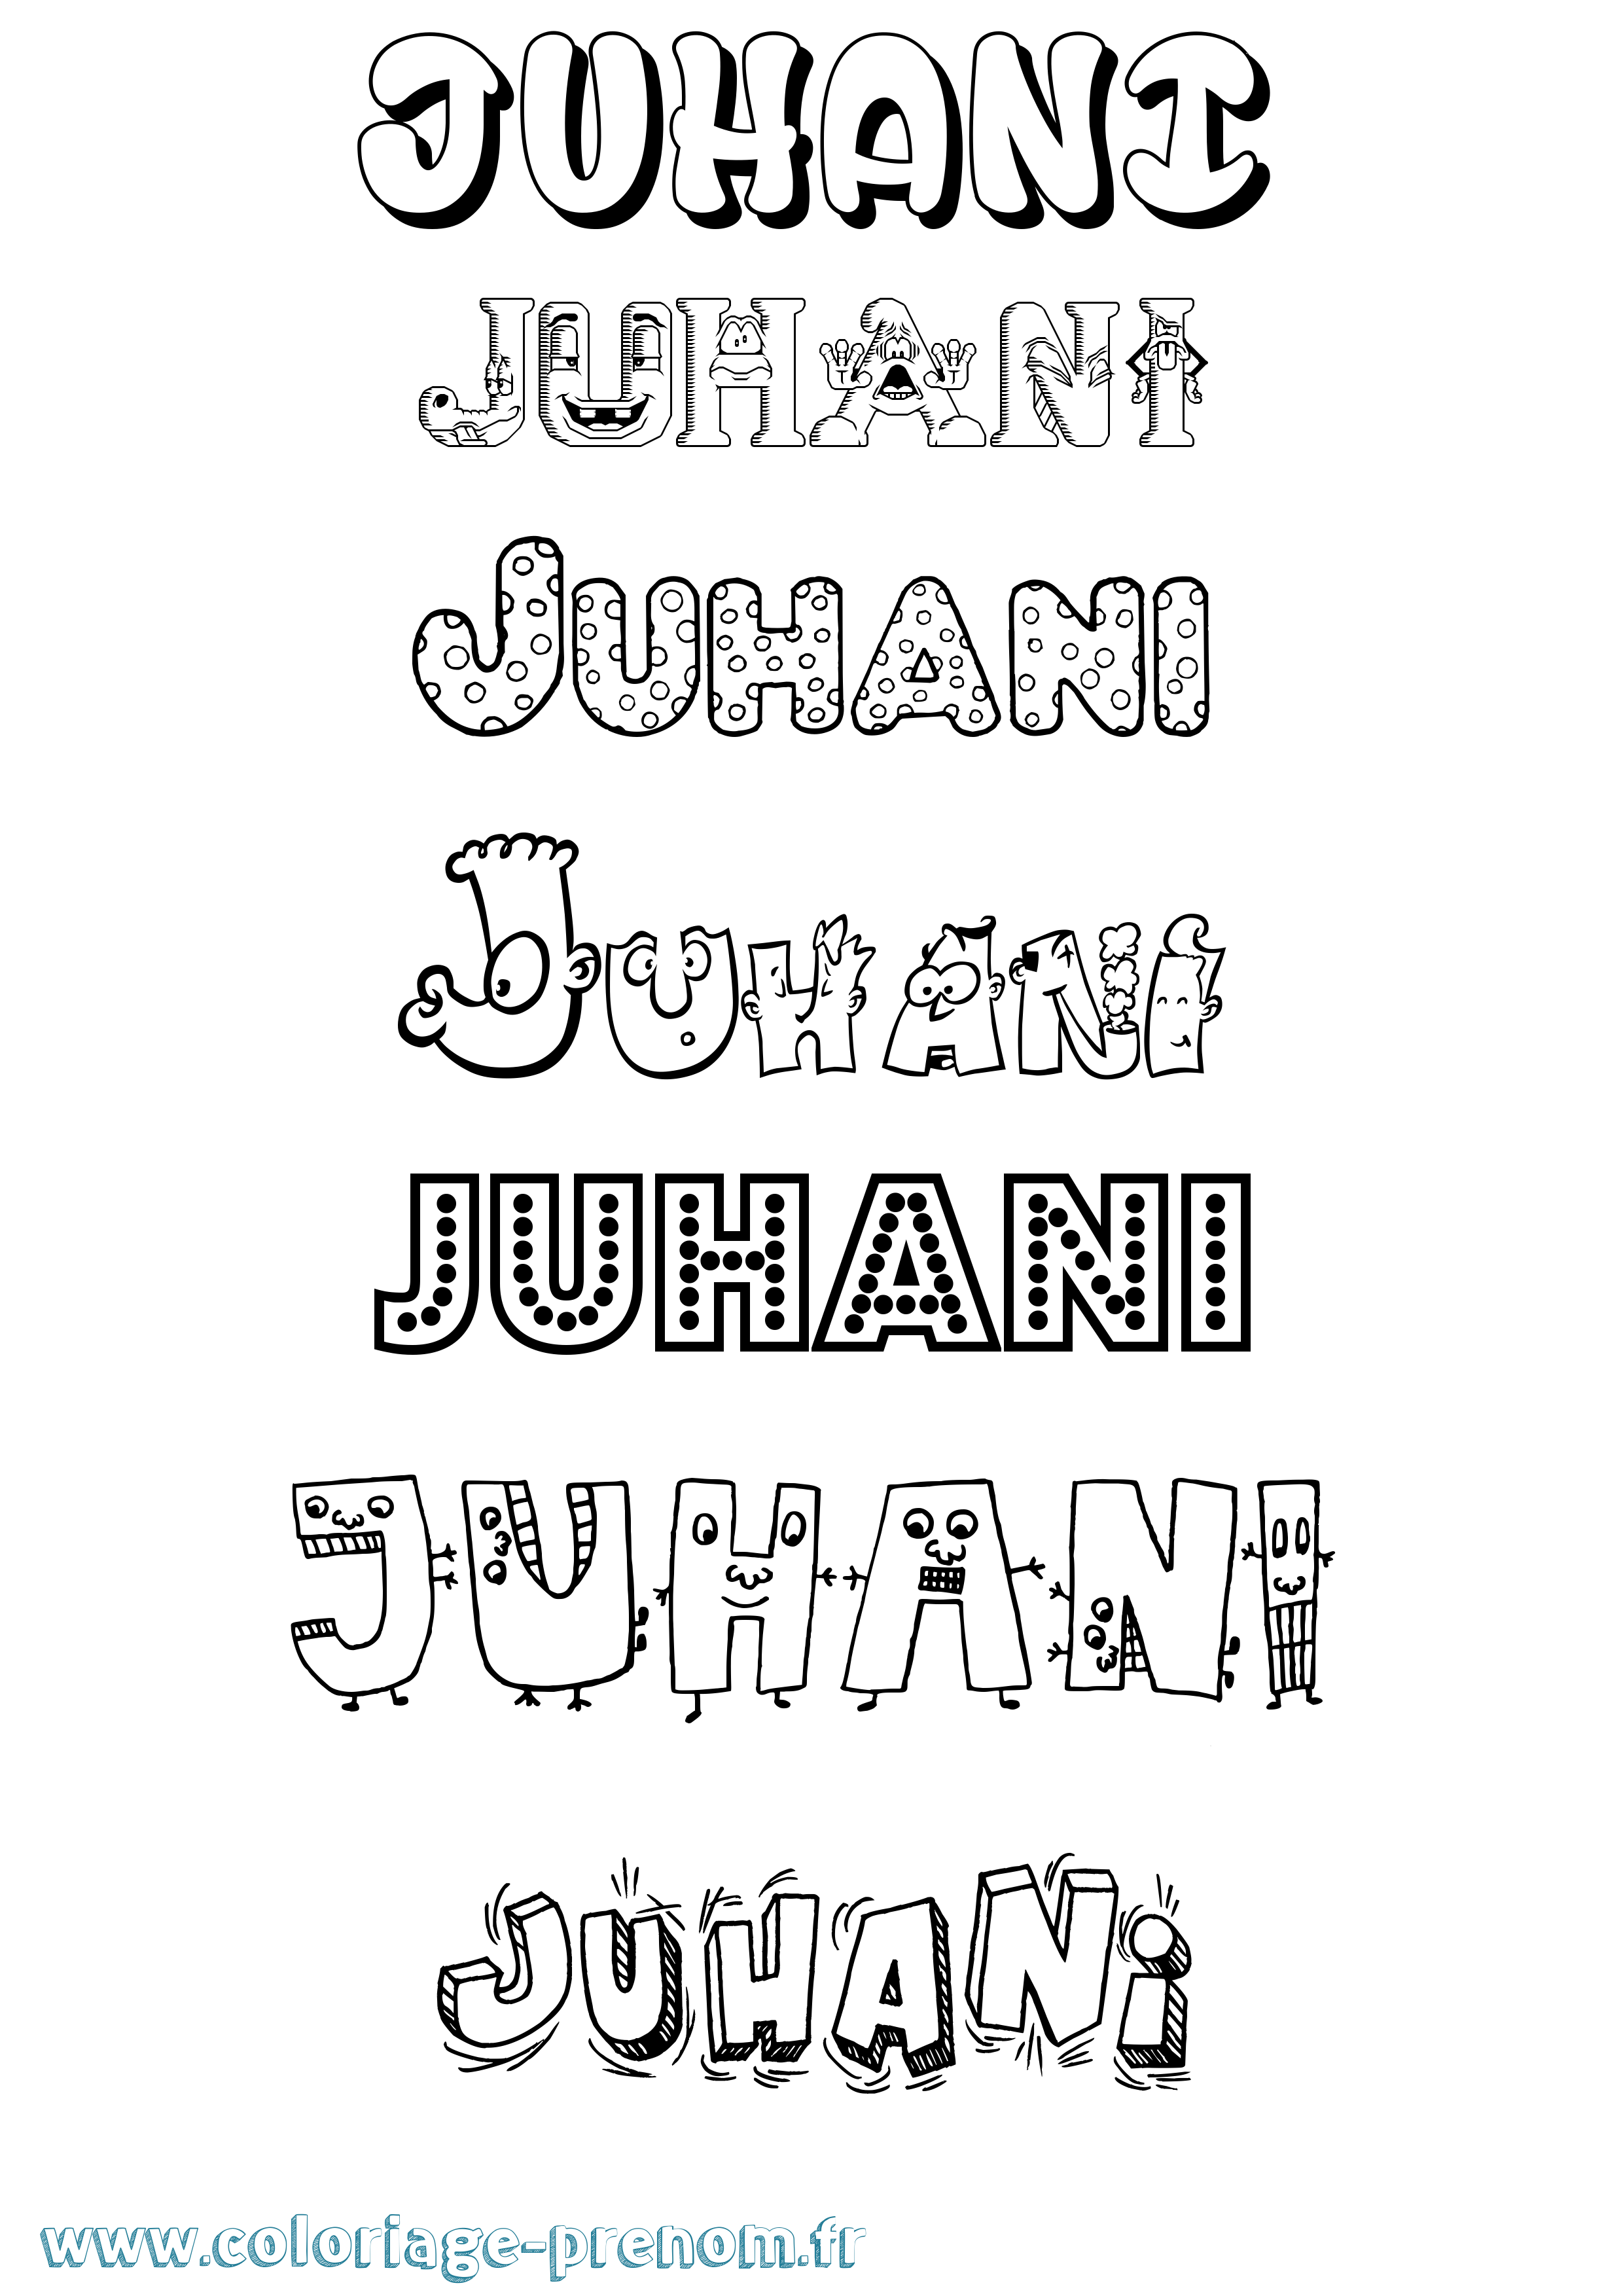 JUHANI
JUHANI
JUHANI
JUHANI
JUHANI
JUHANI
JUHANi
www.coloriage-prenom.fr